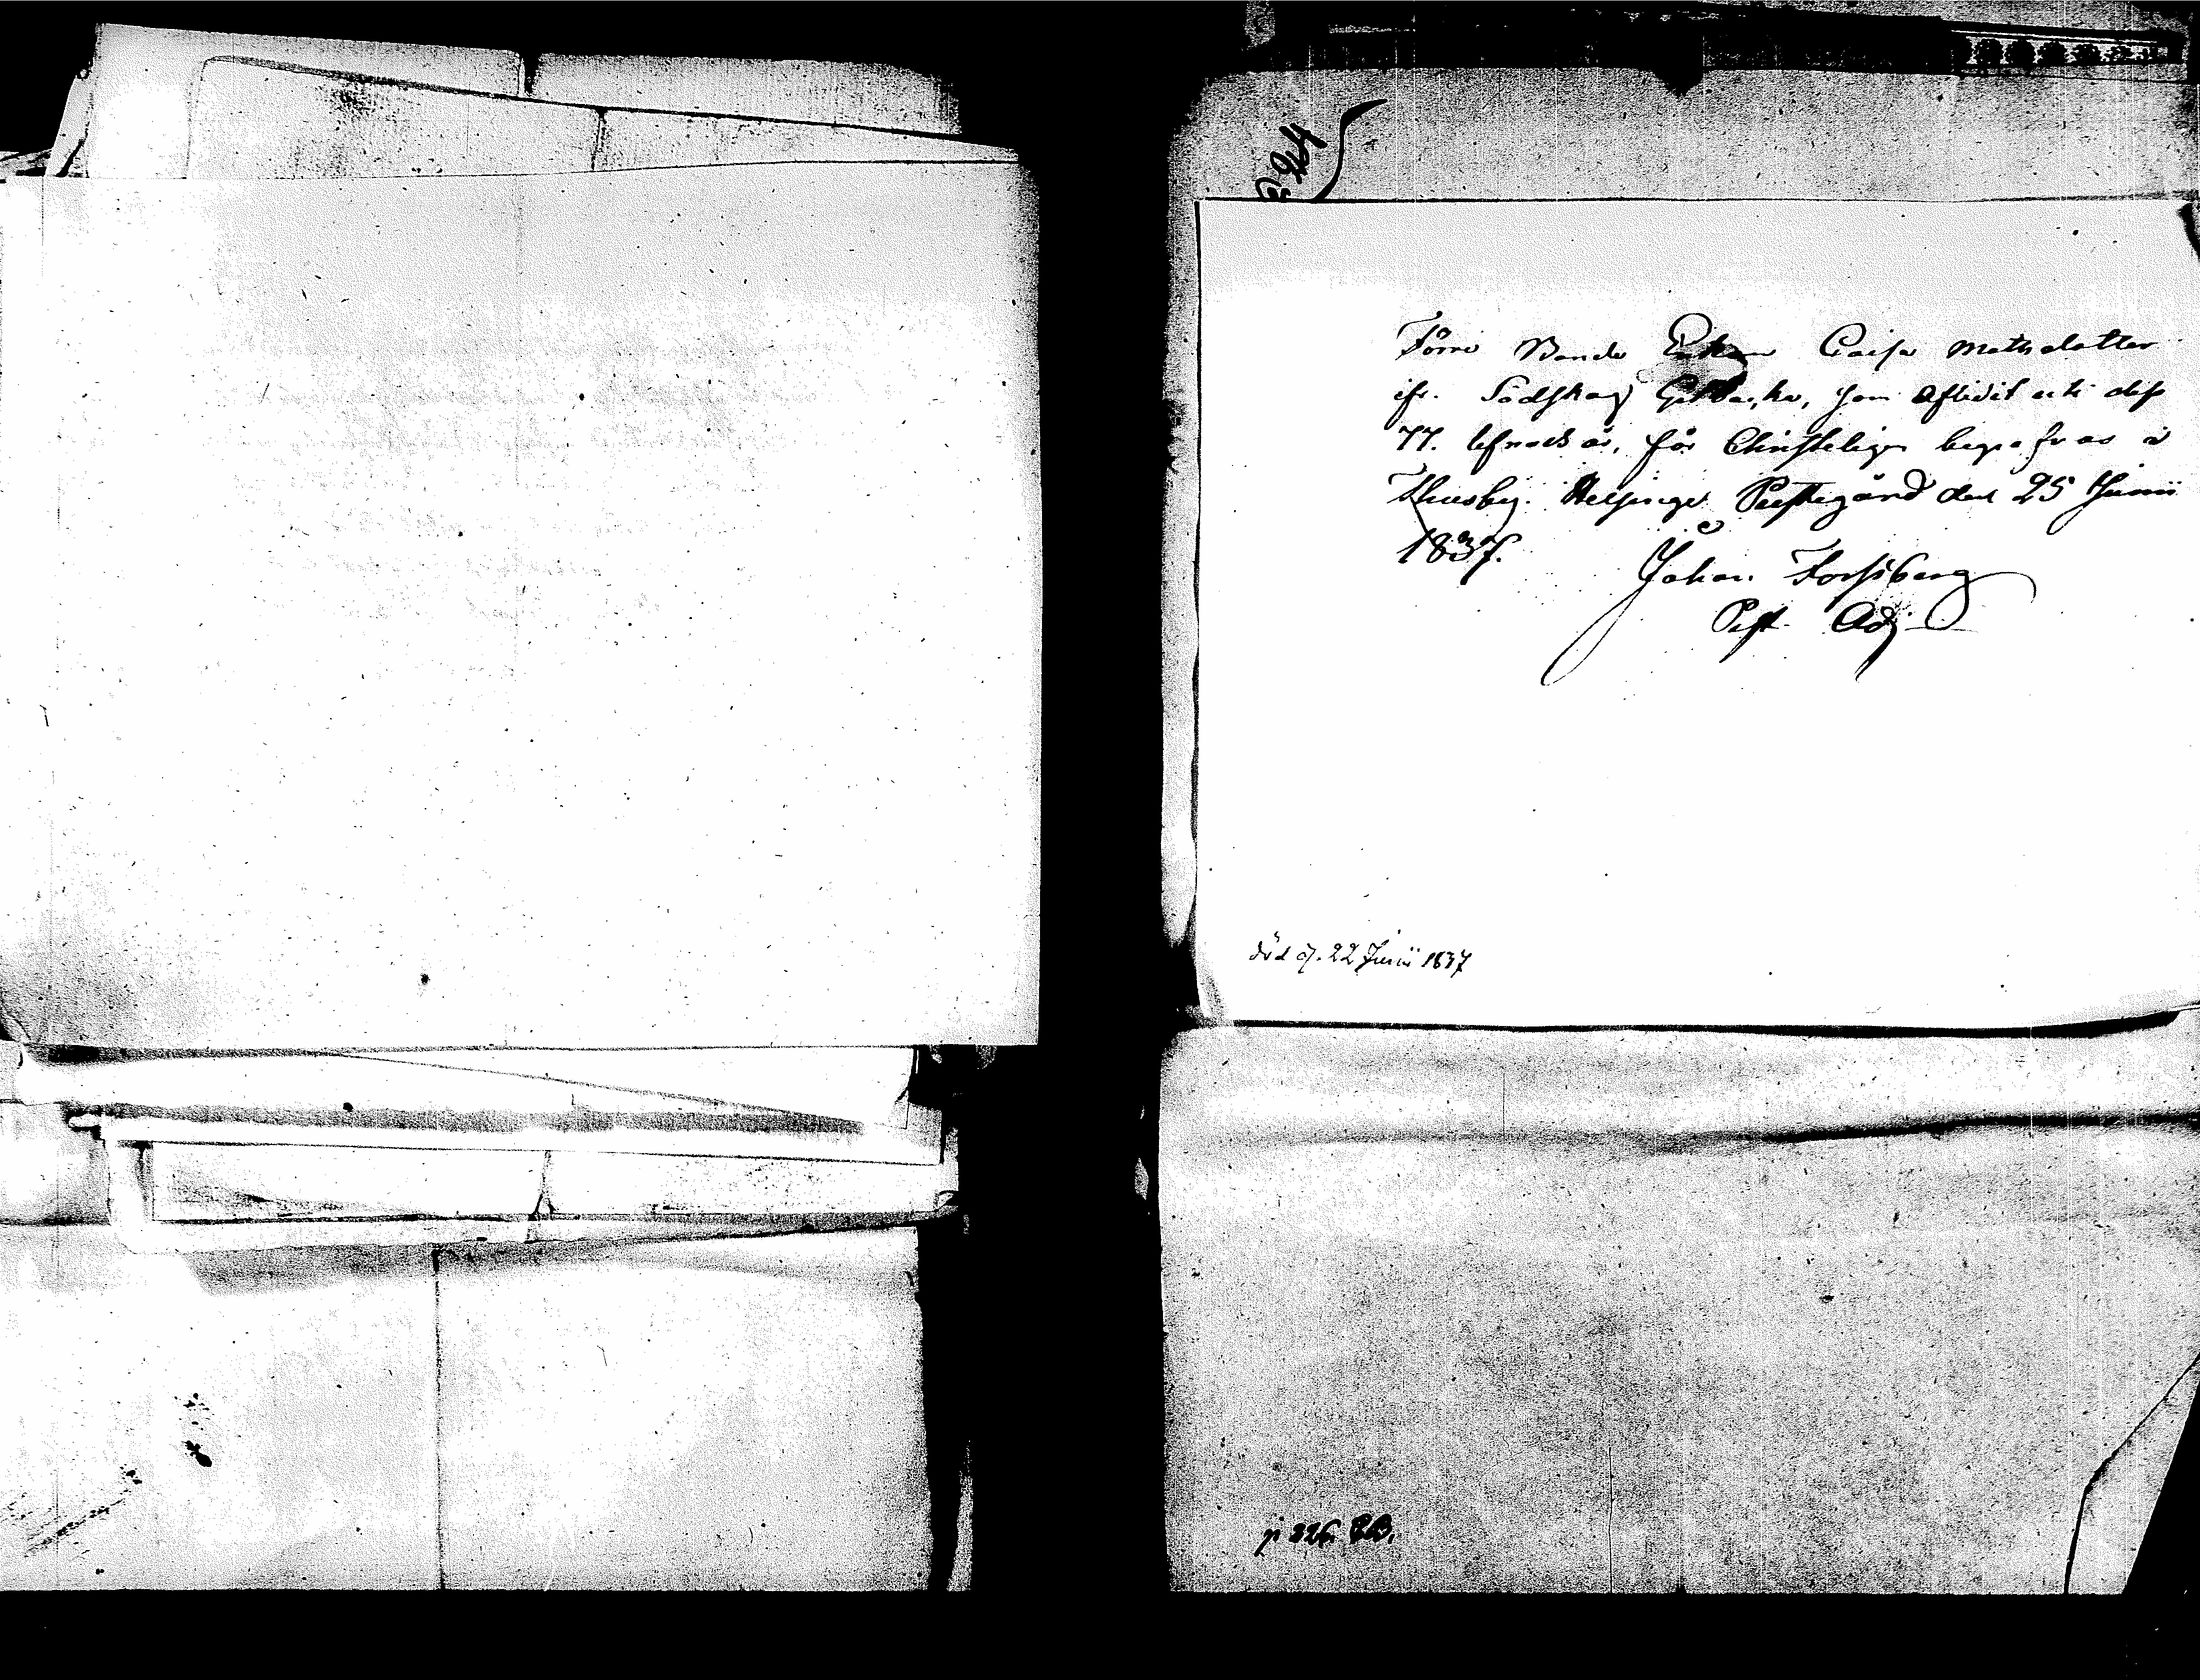 Förre Bonde Enkan Caisa Mathsdotter
ifr. Södskog Gebbacka, som aflidit uti dess
77. lefnads år, får Christeligen begrafvas i
Thusby. Helsinge Prestegård den 25 Junii
1837.
Johan Forssberg
Past. Adj.
död d. 22 Junii 1837
p 226. R.B.